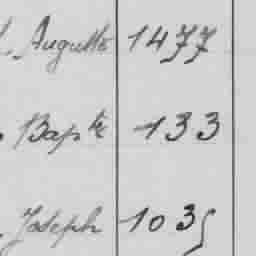 Auguste 1477
Bapte 133
Joseph 1035